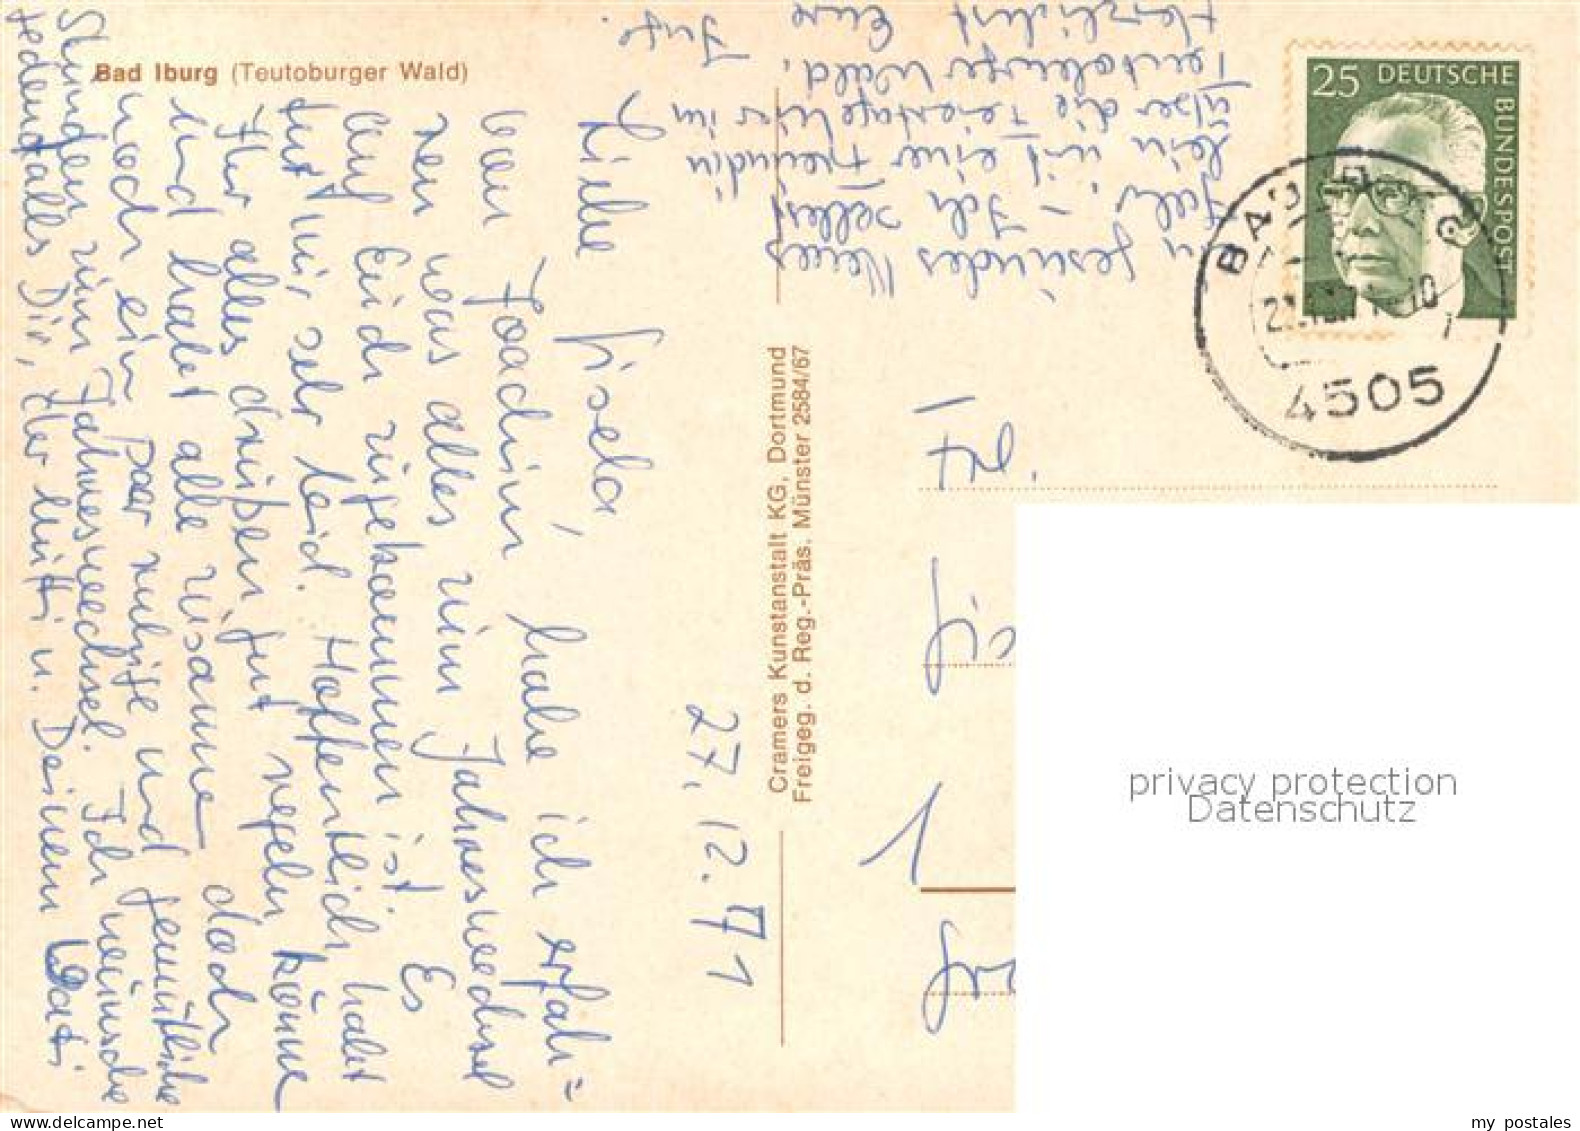 Bad Iburg (Teutoburger Wald)
27.12.71
Liebe Gisela,
von Joachim habe ich erfah=
ren was alles zum Jahreswechsel
auf Euch zugekommen ist. Es
tut mir sehr leid. Hoffentlich habt
Ihr alles drüben gut regeln können
und habt alle zusammen doch
noch ein paar ruhige und gemütliche
Stunden zum Jahreswechsel. Ich wünsche
jedenfalls Dir, der Mutti u. Deinem Vati
ein gesundes Neues
Jahr. Ich selbst
bin mit einer Freundin
über die Feiertage hier im
Teutoburger Wald.
Herzlichst Eure
Jutta.
Cramers Kunstanstalt KG, Dortmund
Freigeg. d. Reg.-Präs. Münster 2584/67
25 DEUTSCHE
BUNDESPOST
BAD IBURG
4505
privacy protection
Datenschutz
my postales